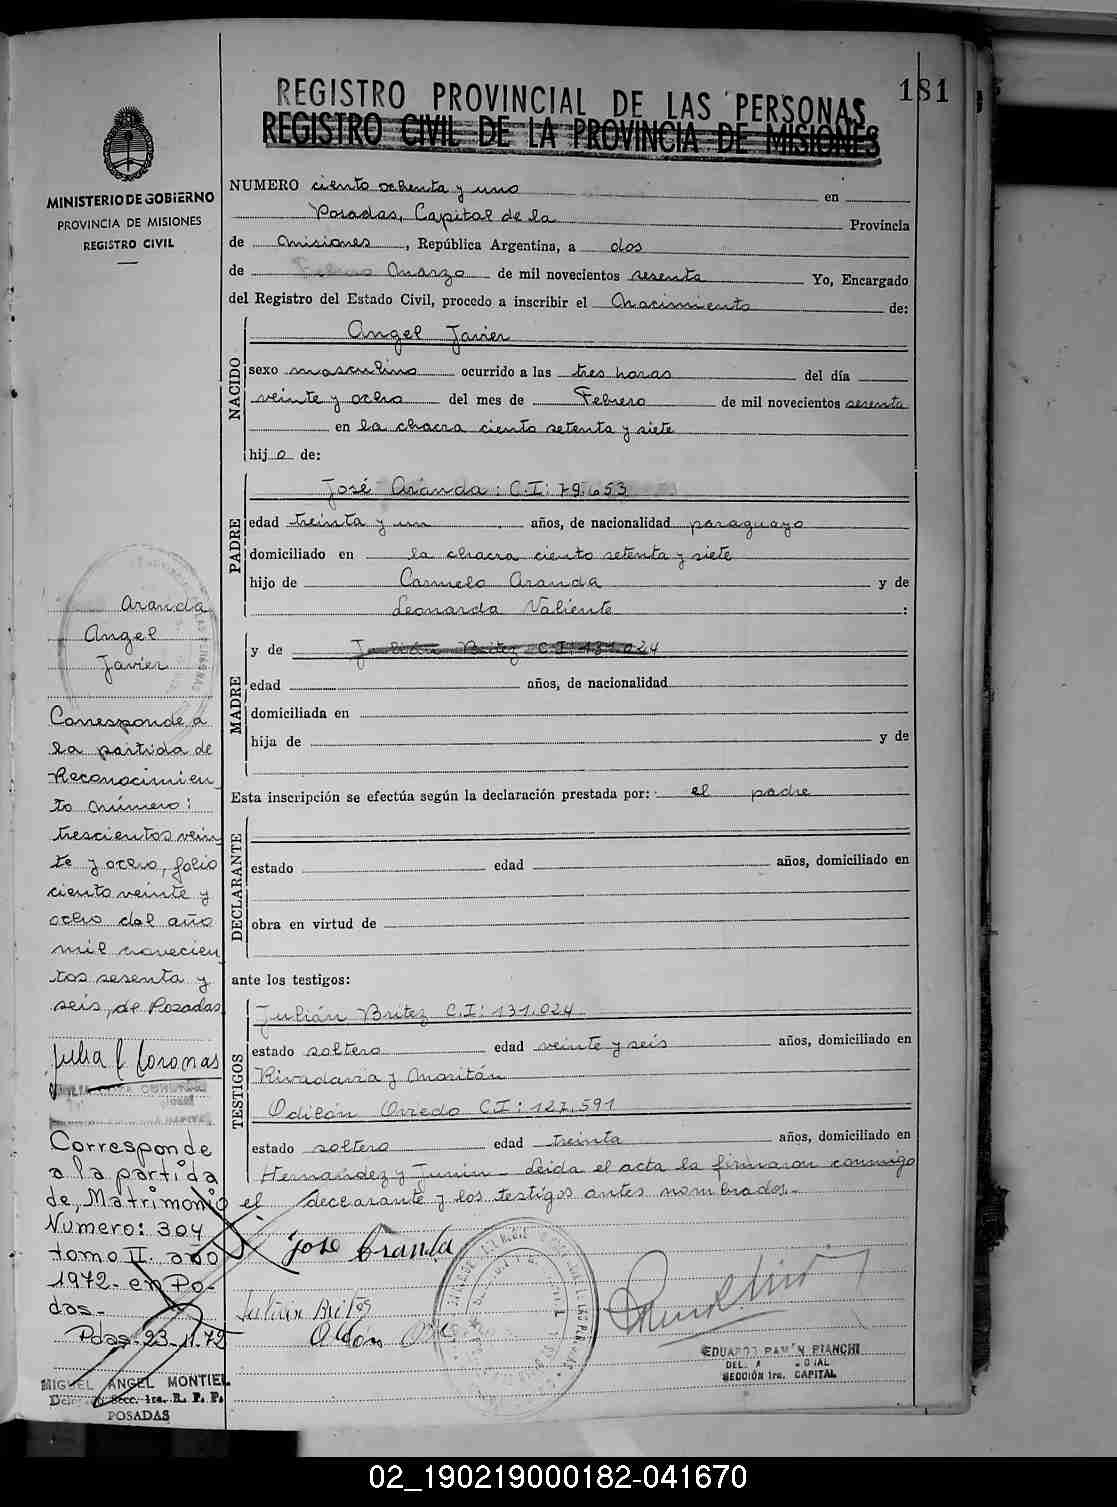 181
REGISTRO PROVINCIAL DE LAS PERSONAS
REGISTRO CIVIL DE LA PROVINCIA DE MISIONES
MINISTERIO DE GOBIERNO
PROVINCIA DE MISIONES
REGISTRO CIVIL
NUMERO ciento ochenta y uno en
Posadas, Capital de la Provincia
de Misiones, República Argentina, a dos
de Marzo de mil novecientos sesenta Yo, Encargado
del Registro del Estado Civil, procedo a inscribir el Nacimiento de:
NACIDO
Angel Javier
sexo masculino ocurrido a las tres horas del día
veinte y ocho del mes de Febrero de mil novecientos sesenta
en la chacra ciento setenta y siete
hijo de:
PADRE
José Aranda: C.I: 79.653
edad treinta y un años, de nacionalidad paraguayo
domiciliado en la chacra ciento setenta y siete
hijo de Carmelo Aranda y de
Leonarda Valiente :
MADRE
y de Julián Britez C.I: 131.024
edad años, de nacionalidad
domiciliada en
hija de y de
Esta inscripción se efectúa según la declaración prestada por: el padre
DECLARANTE
estado edad años, domiciliado en
obra en virtud de
ante los testigos:
TESTIGOS
Julián Britez C.I: 131.024
estado soltero edad veinte y seis años, domiciliado en
Rivadavia y Moritán
Odilón Oviedo C.I: 127.591
estado soltero edad treinta años, domiciliado en
Hernandez y Junin - Leida el acta la firmaron conmigo
el declarante y los testigos antes nombrados.-
Jose Aranda
Julian Britez
EDUARDO RAMON BIANCHI
SECCIÓN 1ra. CAPITAL
Aranda
Angel
Javier
Corresponde a
la partida de
Reconocimien
to número:
trescientos vein
te y ocho, folio
ciento veinte y
ocho del año
mil novecien
tos sesenta y
seis, de Posadas
Julia C Coronas
Corresponde
a la partida
de, Matrimonio
Numero: 304
tomo II. año
1972- en Po-
das.-
Pdas-23-11.72
MIGUEL ANGEL MONTIEL
Secc. 1ra. R. P. P.
POSADAS
02_190219000182-041670